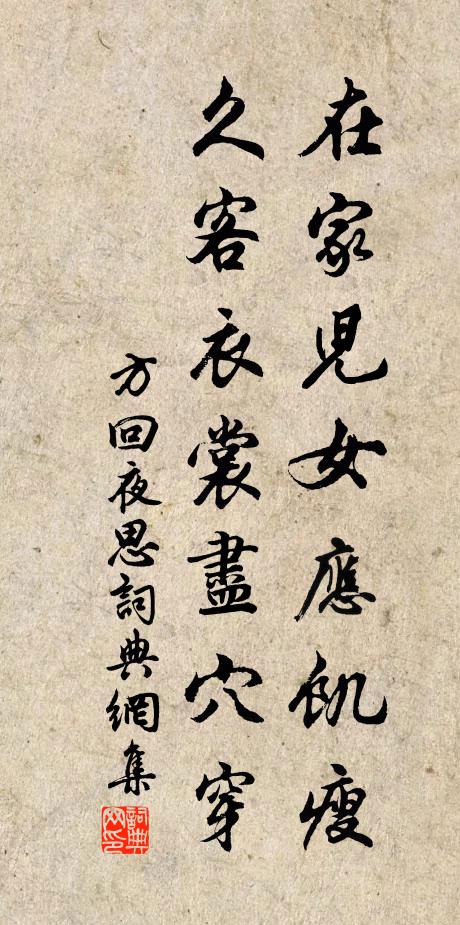 在家児女應飢瘦
久客衣裳盡穴穿
方回夜思詞典網集
詞典
网印